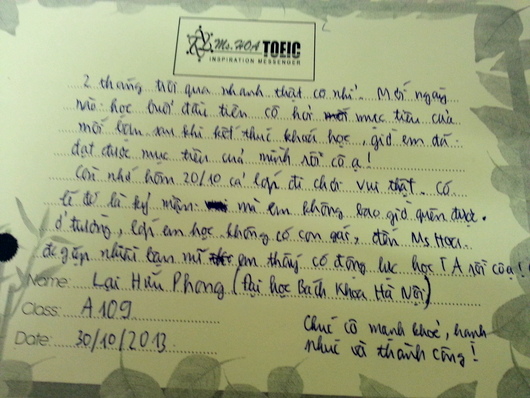 Ms. HOA TOEIC
INSPIRATION MESSENGER
2 tháng trôi qua nhanh thật cô nhỉ. Mới ngày
nào học buổi đầu tiên cô hỏi mục tiêu của
mỗi bạn sau khi kết thúc khoá học, giờ em đã
đạt được mục tiêu của mình rồi cô ạ!
Còn nhớ hôm 20/10 cả lớp đi chơi vui thật. Có
lẽ đó là kỷ niệm mà em không bao giờ quên được.
Ở trường, lớp em học không có con gái, đến Ms Hoa
đc gặp nhiều bạn nữ em thấy có động lực học TA rồi cô ạ!
Name: Lại Hữu Phong (Đại học Bách Khoa Hà Nội)
Class: A109
Date: 30/10/2013
Chúc cô mạnh khoẻ, hạnh
phúc và thành công!